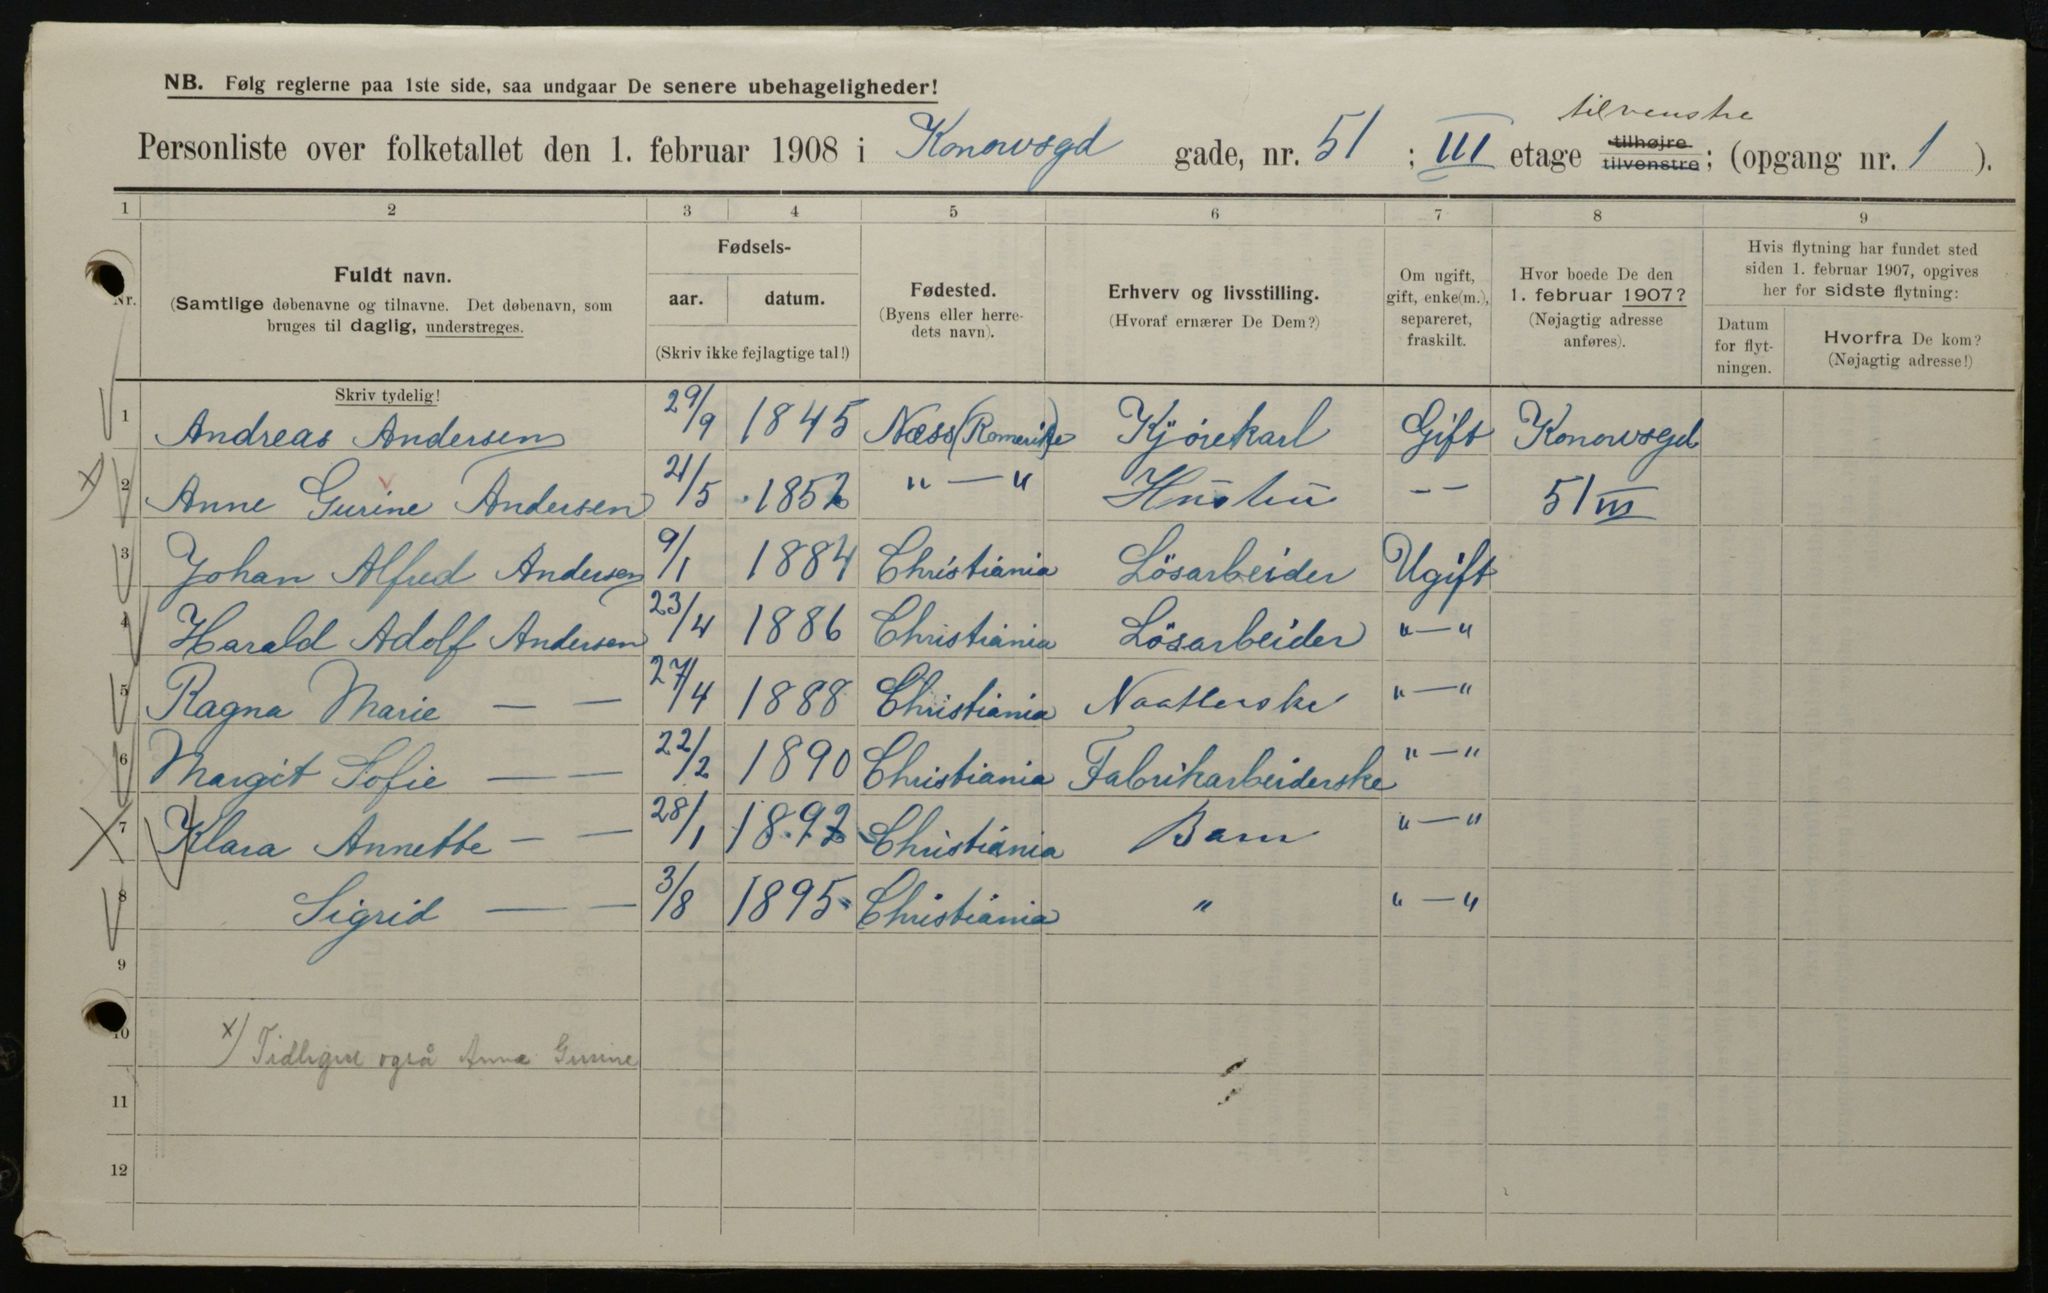 NB. Følg reglerne paa 1ste side, saa undgaar De senere ubehageligheder!
tilvenstre
Personliste over folketallet den 1. februar 1908 i Konowsgd gade, nr. 51 ; III etage tilhøjre tilvenstre; (opgang nr. 1 ).
1 2 3 4 5 6 7 8 9
Nr.
Fuldt navn.
(Samtlige døbenavne og tilnavne. Det døbenavn, som
bruges til daglig, understreges.
Fødsels-
aar. datum.
(Skriv ikke fejlagtige tal!)
Fødested.
(Byens eller herre-
dets navn).
Erhverv og livsstilling.
(Hvoraf ernærer De Dem?)
Om ugift,
gift, enke(m.),
separeret,
fraskilt.
Hvor boede De den
1. februar 1907?
(Nøjagtig adresse
anføres).
Hvis flytning har fundet sted
siden 1. februar 1907, opgives
her for sidste flytning:
Datum
for flyt-
ningen.
Hvorfra De kom?
(Nøjagtig adresse!)
Skriv tydelig!
1 Andreas Andersen 29/9 1845 Næss (Romerike) Kjørekarl Gift Konowsgd
x) 2 Anne Gurine Andersen 21/5 1852 " — " Hustru -- 51 III
3 Johan Alfred Andersen 9/1 1884 Christiania Lösarbeider Ugift
4 Harald Adolf Andersen 23/4 1886 Christiania Lösarbeider " — "
5 Ragna Marie — — 27/4 1888 Christiania Naatlerske " — "
6 Margit Sofie — — 22/2 1890 Christiania Fabrikarbeiderske " — "
X 7 Klara Annette — — 28/1 1892 Christiania Barn " — "
8 Sigrid — — 3/8 1895 Christiania " " — "
9
10
x) Tidligere også Anna Gurine
11
12